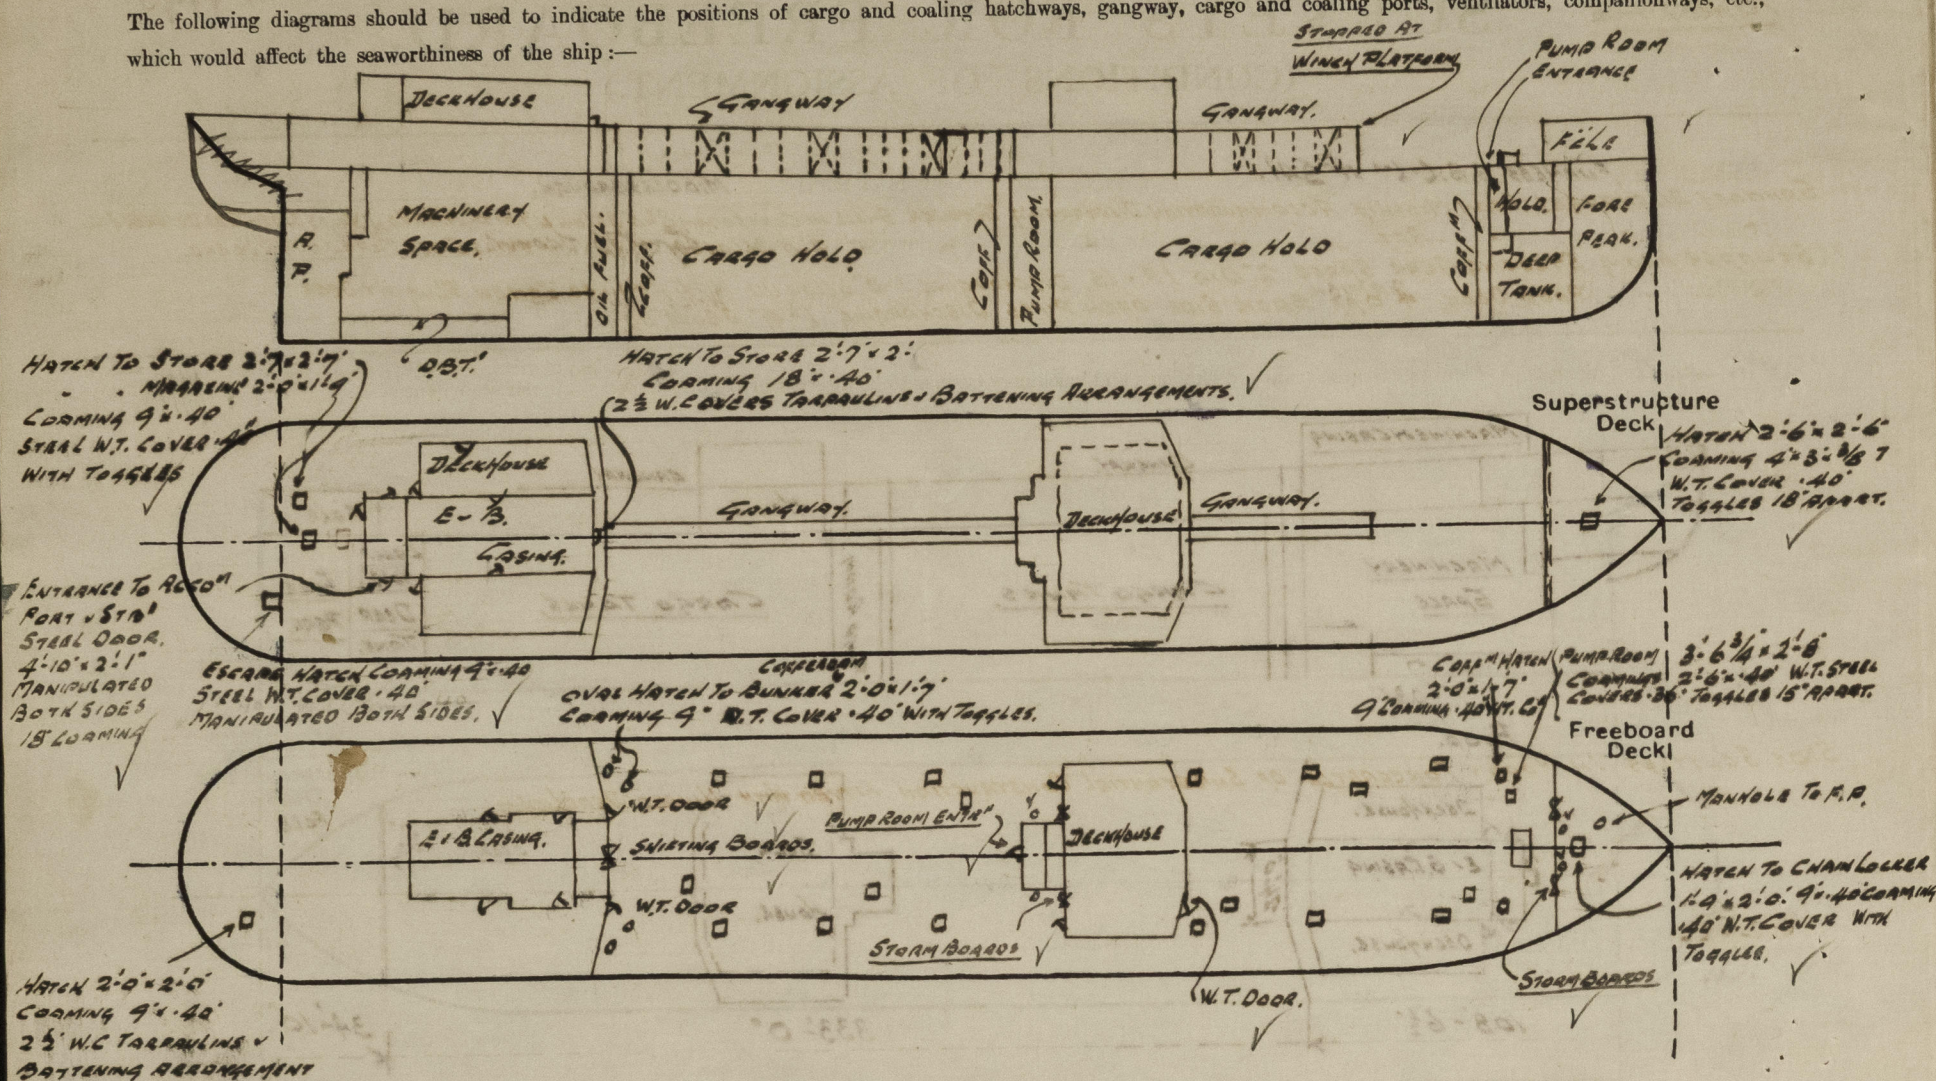 The following diagrams should be used to indicate the positions of cargo and coaling hatchways, gangway, cargo and coaling ports, ventilators, companionways, etc.,
which would affect the seaworthiness of the ship :—
STOPPED AT
WINCH PLATFORM
PUMP ROOM
ENTRANCE
DECKHOUSE
GANGWAY
GANGWAY.
F'CLE
MACHINERY
SPACE.
A.
P.
OIL FUEL.
COFF.
CARGO HOLD
COFF
PUMP ROOM.
CARGO HOLD
COFFM
HOLD.
DEEP
TANK.
FORE
PEAK.
D.B.T.
HATCH TO STORE 2'-7" x 2'-7"
" " MAGAZINE 2'-0" x 1'-9"
COAMING 9" x .40"
STEEL W.T. COVER .40"
WITH TOGGLES
HATCH TO STORE 2'-7" x 2'-
COAMING 18" x .40"
2½ W. COVERS TARPAULINS & BATTENING ARRANGEMENTS.
Superstructure
Deck
HATCH 2'-6" x 2'-6"
COAMING 4" x 3" x 3/8
W.T. COVER .40"
TOGGLES 18" APART.
DECKHOUSE
E & B.
CASING.
GANGWAY.
DECKHOUSE
GANGWAY.
ENTRANCE TO ACCOM
PORT & STBD
STEEL DOOR.
4'-10" x 2'-1"
MANIPULATED
BOTH SIDES
18" COAMING
ESCAPE HATCH COAMING 9" x .40
STEEL W.T. COVER .40"
MANIPULATED BOTH SIDES.
COFFERDAM
OVAL HATCH TO BUNKER 2'-0" x 1'-7"
COAMING 9" W.T. COVER .40" WITH TOGGLES.
COFFM HATCH
2'-0" x 1'-7"
9" COAMING .40" W.T. COV
PUMP ROOM 3'-6 3/4 x 2'-8"
COAMINGS 2'-6" x .40" W.T. STEEL
COVERS .36" TOGGLES 15" APART.
Freeboard
Deck
E & B. CASING.
W.T. DOOR
SHIFTING BOARDS.
W.T. DOOR
PUMP ROOM ENTRCE
DECKHOUSE
STORM BOARDS
MANHOLE TO F.P.
HATCH TO CHAIN LOCKER
1'-9" x 2'-0". 9" x .40" COAMING
.40" W.T. COVER WITH
TOGGLES.
STORM BOARDS
W.T. DOOR.
HATCH 2'-0" x 2'-0"
COAMING 9" x .40"
2½" W.C TARPAULINS &
BATTENING ARRANGEMENT